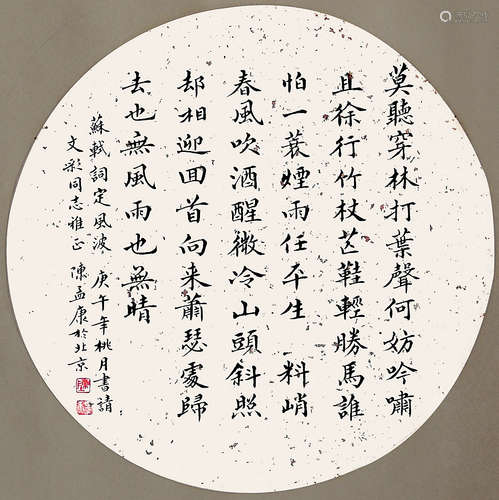 莫聽穿林打葉聲何妨吟嘯
且徐行竹杖芒鞋輕勝馬誰
怕一蓑煙雨任平生 料峭
春風吹酒醒微冷山頭斜照
却相迎回首向来蕭瑟處歸
去也無風雨也無晴
蘇軾詞定風波 庚午年桃月書請
文彩同志雅正 陳孟康於北京